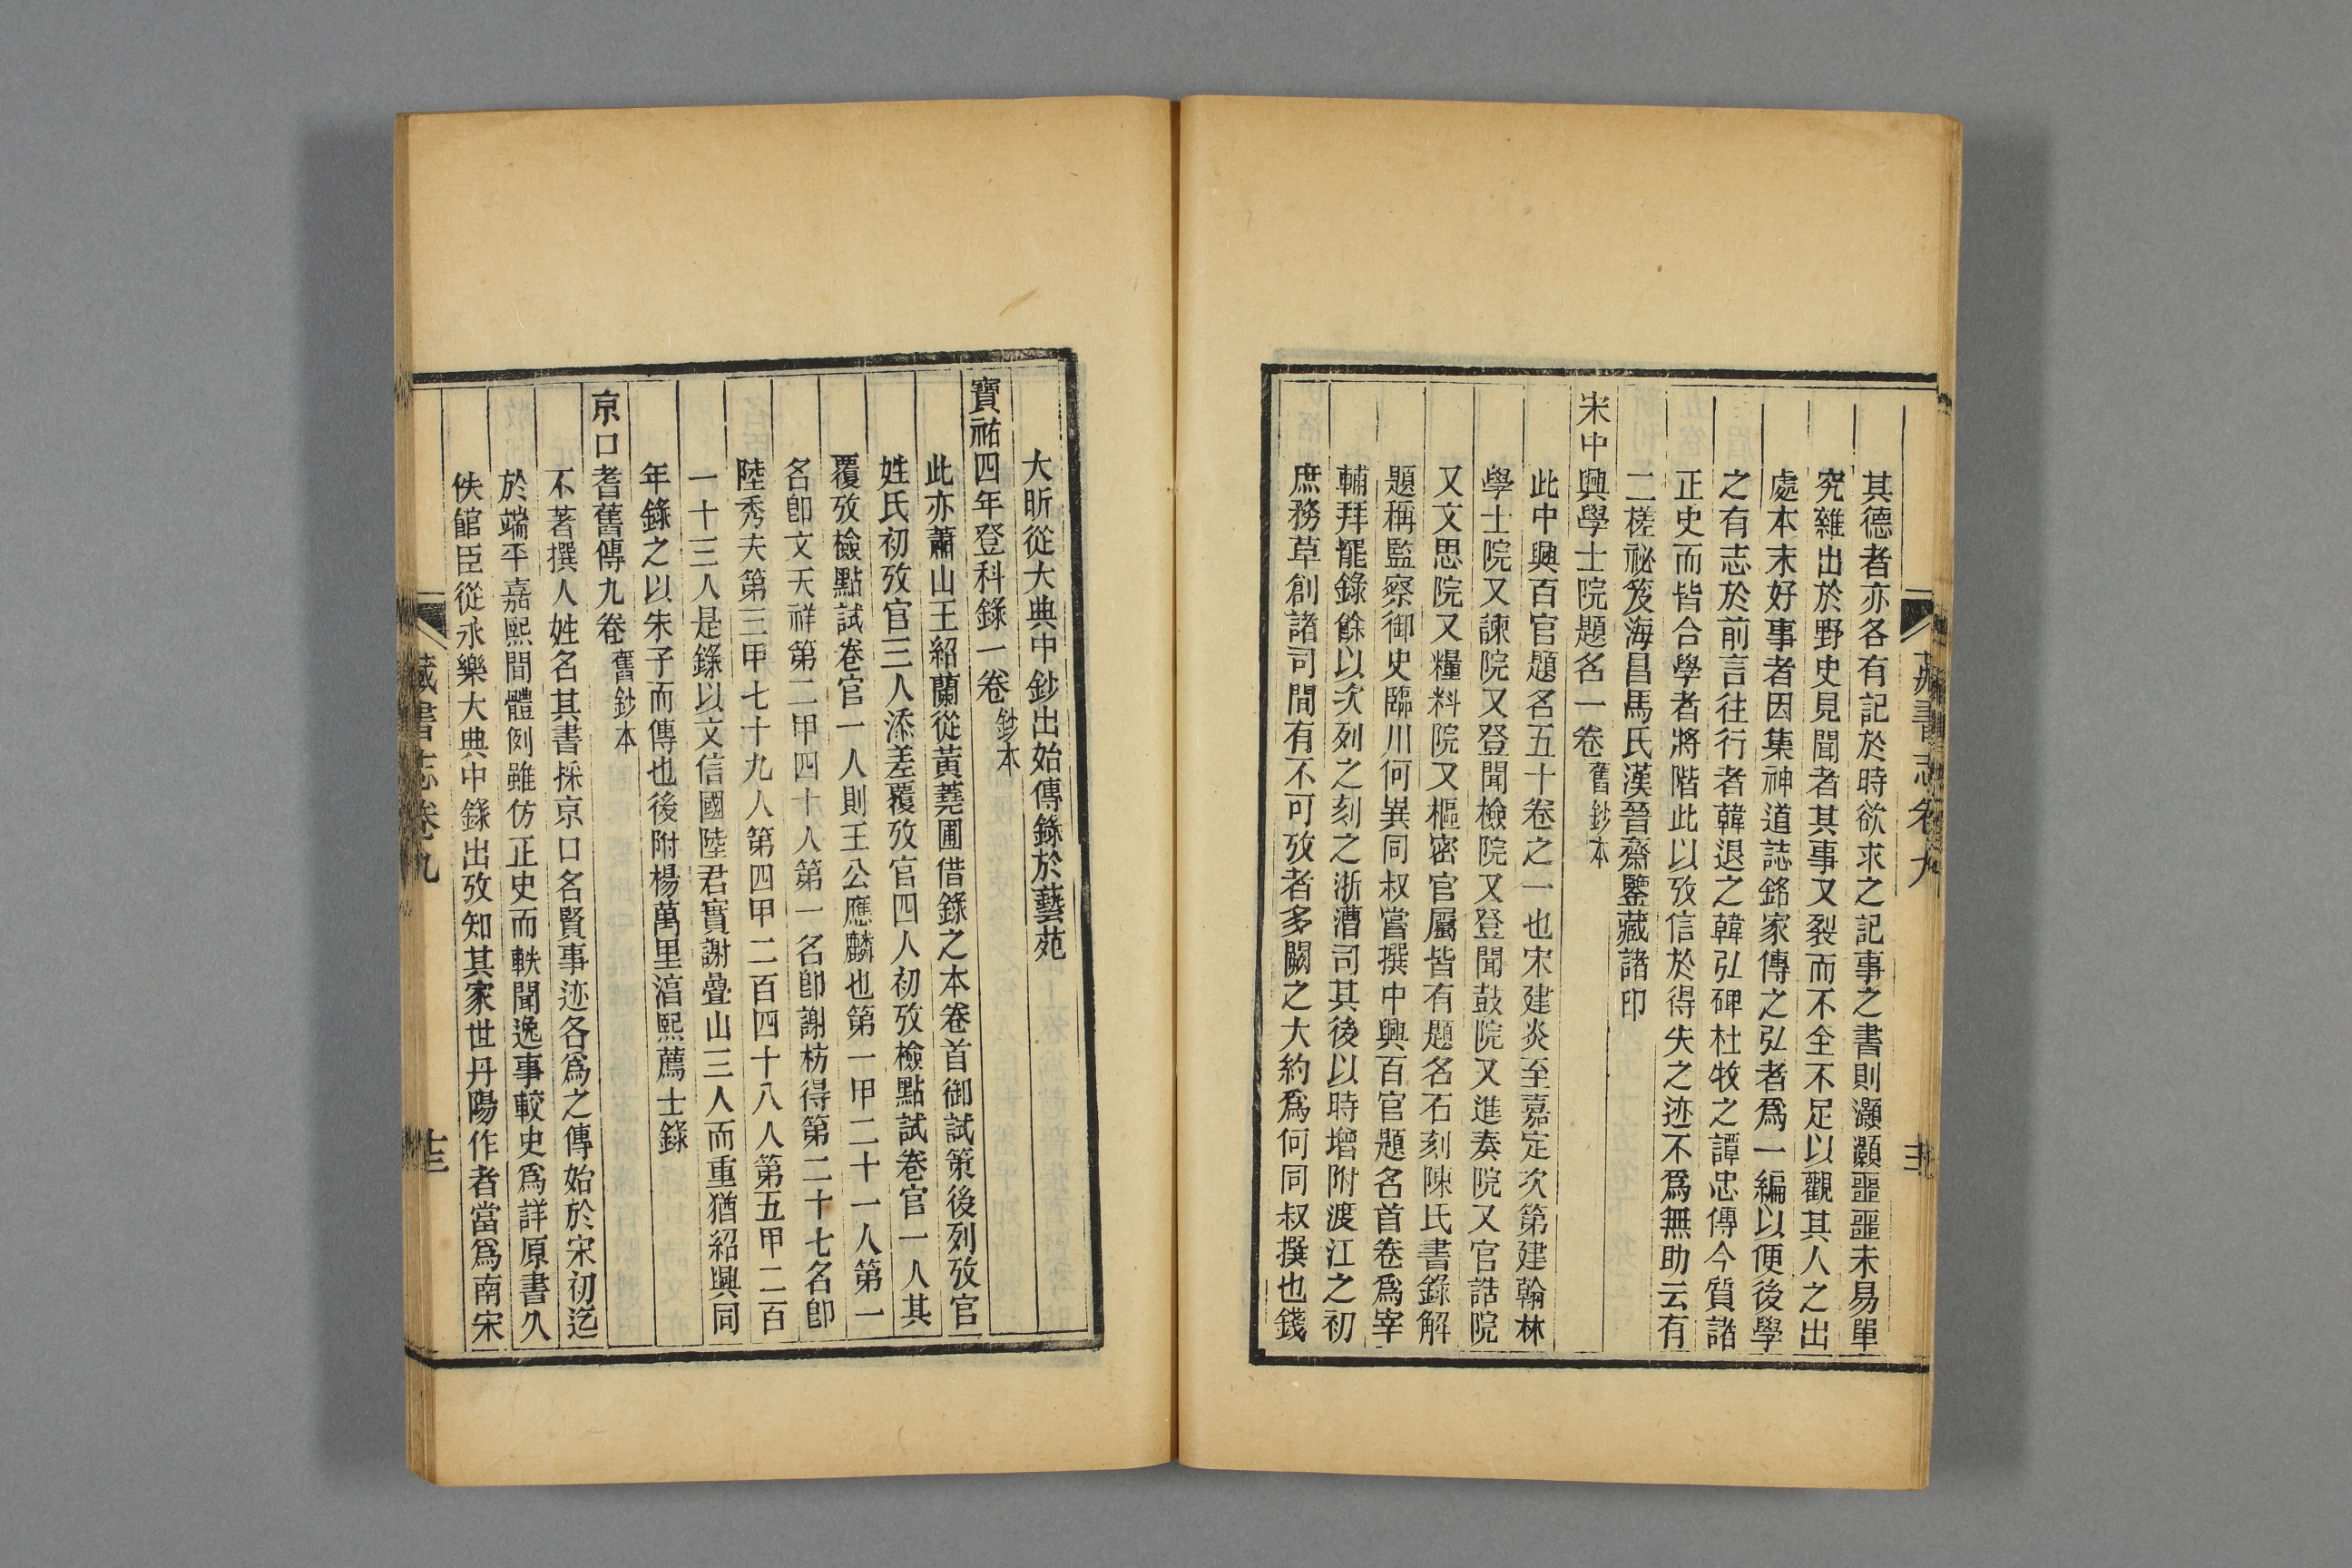 其德者亦各有記於時欲求之記事之書則灝灝噩噩未易單
究雜出於野史見聞者其事又裂而不全不足以觀其人之出
處本末好事者因集神道誌銘家傳之弘者爲一編以便後學
之有志於前言往行者韓退之韓弘碑杜牧之譚忠傳今質諸
正史而皆合學者將階此以攷信於得失之迹不爲無助云有
二槎祕笈海昌馬氏漢晉齋鑒藏諸印
宋中興學士院題名一卷舊鈔本
此中興百官題名五十卷之一也宋建炎至嘉定次第建翰林
學士院又諫院又登聞檢院又登聞鼓院又進奏院又官誥院
又文思院又糧料院又樞密官屬皆有題名石刻陳氏書錄解
題稱監察御史臨川何異同叔嘗撰中興百官題名首卷爲宰
輔拜罷錄餘以次列之刻之浙漕司其後以時增附渡江之初
庶務草創諸司間有不可攷者多闕之大約爲何同叔撰也錢
大昕從大典中鈔出始傳錄於藝苑
寶祐四年登科錄一卷鈔本
此亦蕭山王紹蘭從黃蕘圃借錄之本卷首御試策後列攷官
姓氏初攷官三人添差覆攷官四人初攷檢點試卷官一人其
覆攷檢點試卷官一人則王公應麟也第一甲二十一人第一
名卽文天祥第二甲四十人第一名卽謝枋得第二十七名卽
陸秀夫第三甲七十九人第四甲二百四十八人第五甲二百
一十三人是錄以文信國陸君實謝疊山三人而重猶紹興同
年錄之以朱子而傳也後附楊萬里湻熙薦士錄
京口耆舊傳九卷舊鈔本
不著撰人姓名其書採京口名賢事迹各爲之傳始於宋初迄
於端平嘉熙間體例雖仿正史而軼聞逸事較史爲詳原書久
佚館臣從永樂大典中錄出攷知其家世丹陽作者當爲南宋
藏書志卷九